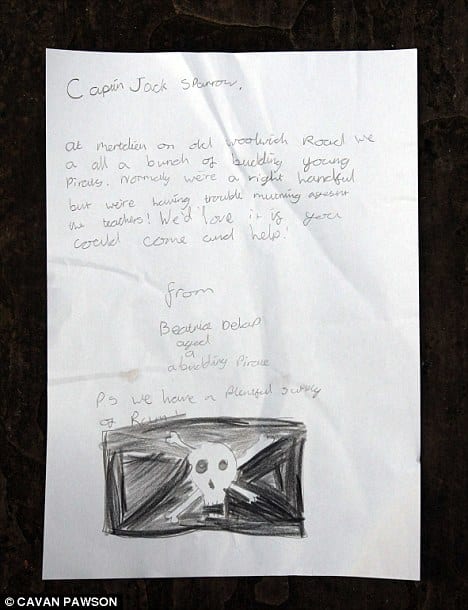 Captin Jack Sparrow,
at meridien on old woolwich Road we
a all a bunch of budding young
Pirates. Normally we're a right handful
but we're having trouble mutining agesnt
the teachers! We'd love it if you
could come and help!
from
Beatrice Delap
aged
9
a budding Pirate
PS we have a Plentiful
of
© CAVAN PAWSON